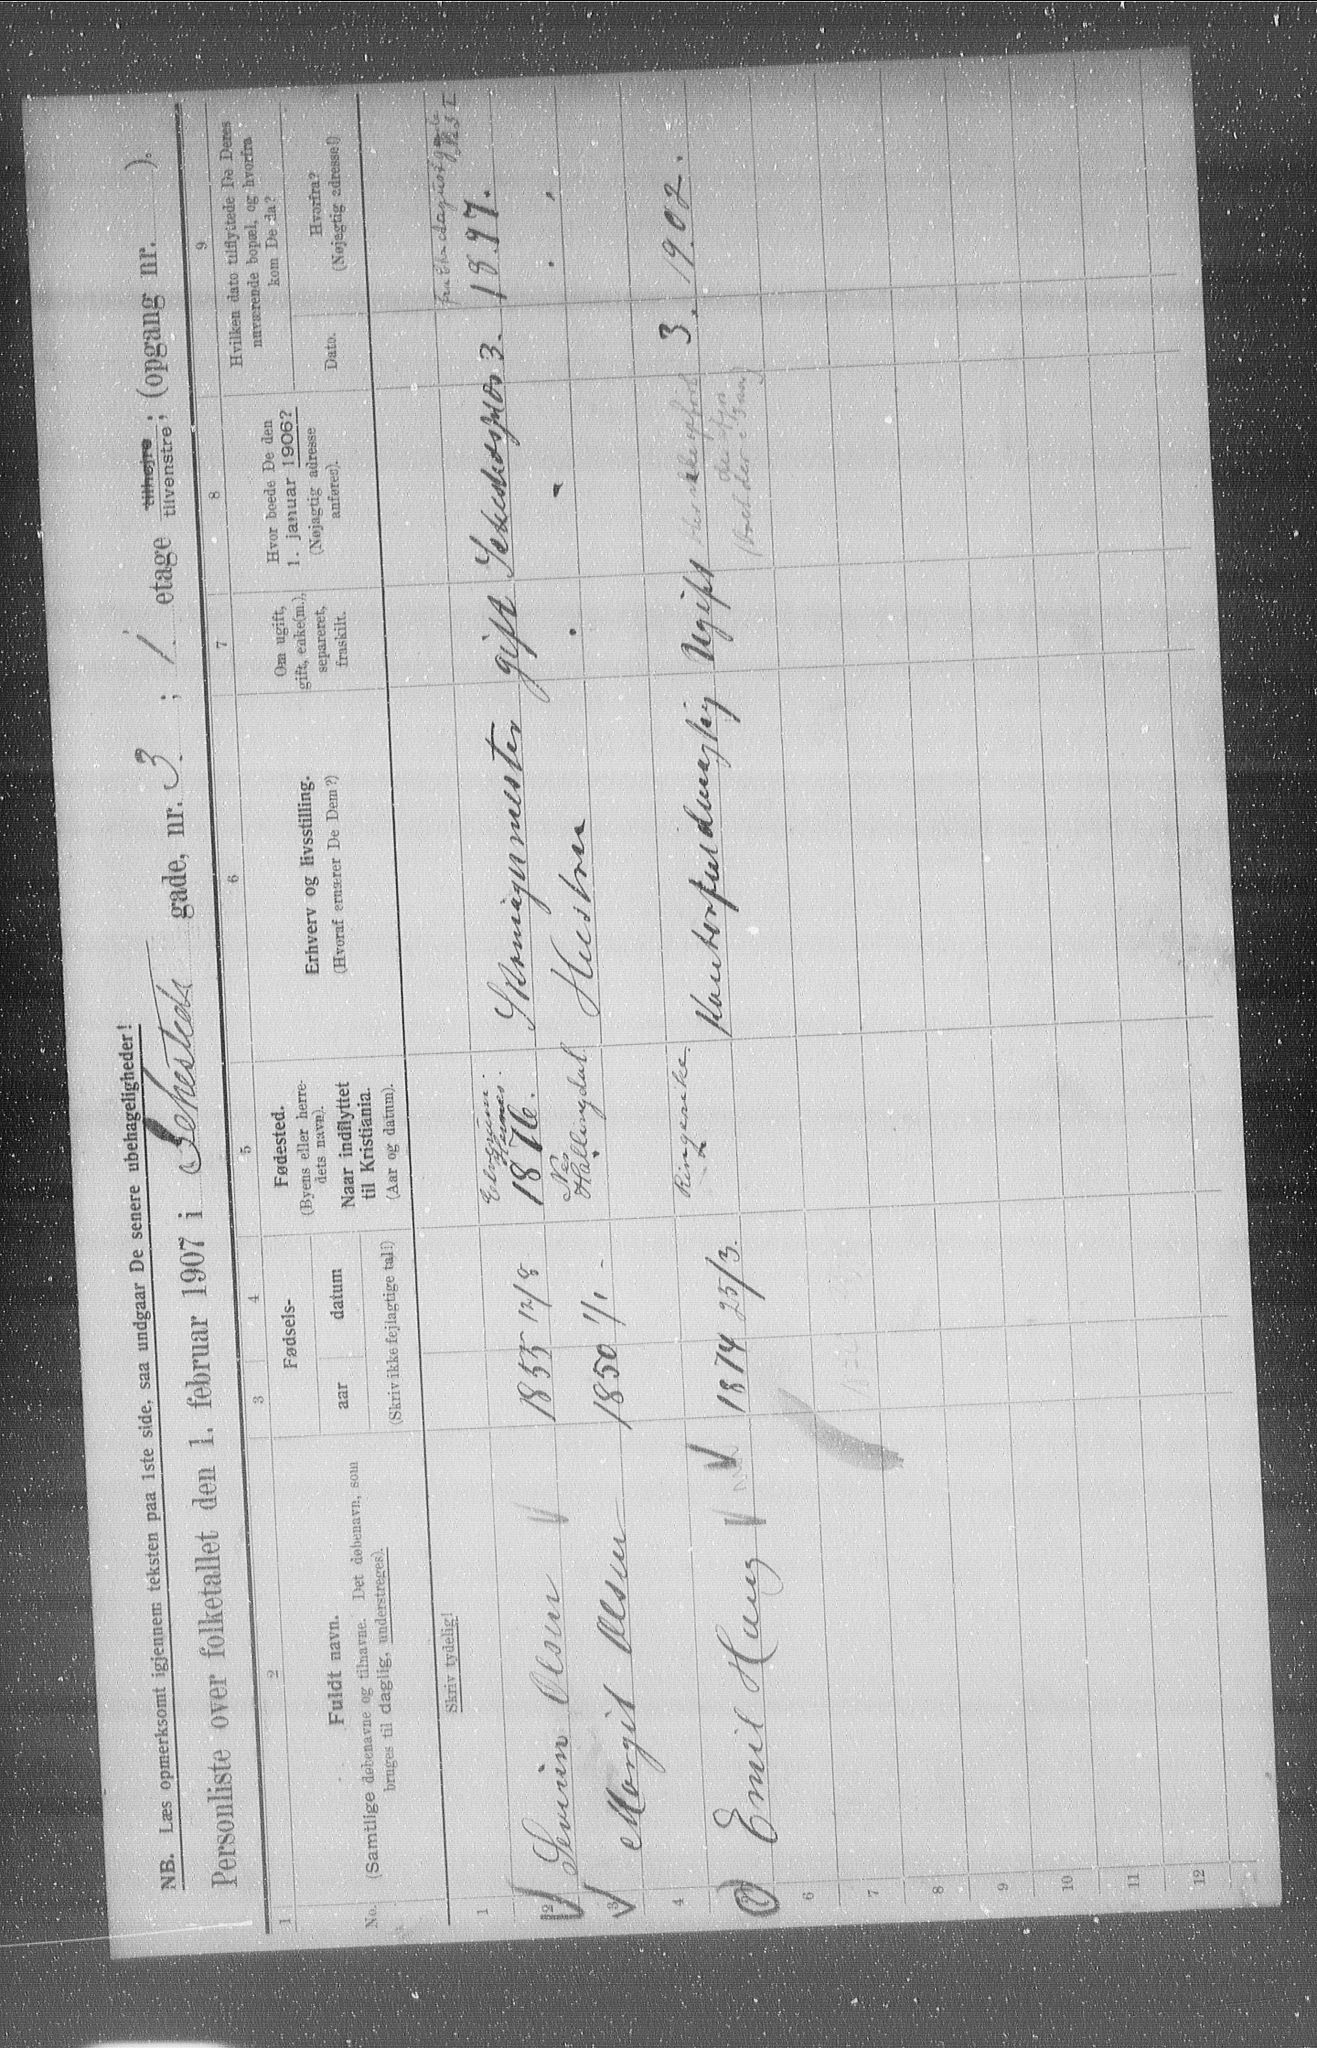 NB. Læs opmerksomt igjennem teksten paa 1ste side, saa undgaar De senere ubehageligheder!
Personliste over folketallet den 1. februar 1907 i Sehesteds gade, nr. 3 ; 1. etage tilhøjre; tilvenstre; (opgang nr. ).
1 2 3 4 5 6 7 8 9
No.
Fuldt navn.
(Samtlige døbenavne og tilnavne. Det døbenavn, som
bruges til daglig, understreges).
Fødsels-
aar datum
(Skriv ikke fejlagtige tal!)
Fødested.
(Byens eller herre-
dets navn).
Naar indflyttet
til Kristiania.
(Aar og datum).
Erhverv og livsstilling.
(Hvoraf ernærer De Dem?)
Om ugift,
gift, enke(m.),
separeret,
fraskilt.
Hvor boede De den
1. januar 1906?
(Nøjagtig adresse
anføres).
Hvilken dato tilflyttede De Deres
nuværende bopæl, og hvorfra
kom De da?
Dato.
Hvorfra?
(Nøjagtig adresse!)
Skriv tydelig!
1
2 Severin Olsen 1855 12/8 1876. Skomagermester gift Sehestedsgd 3. 1897.
3 Margit Olsen 1850 1/1 - Nes Hallingdal Hustru
4
Emil Haug 1874 25/3. Ringerike. Kontorfuldmægtig Ugift 3. 1902.
6
7
8
9
10
11
12